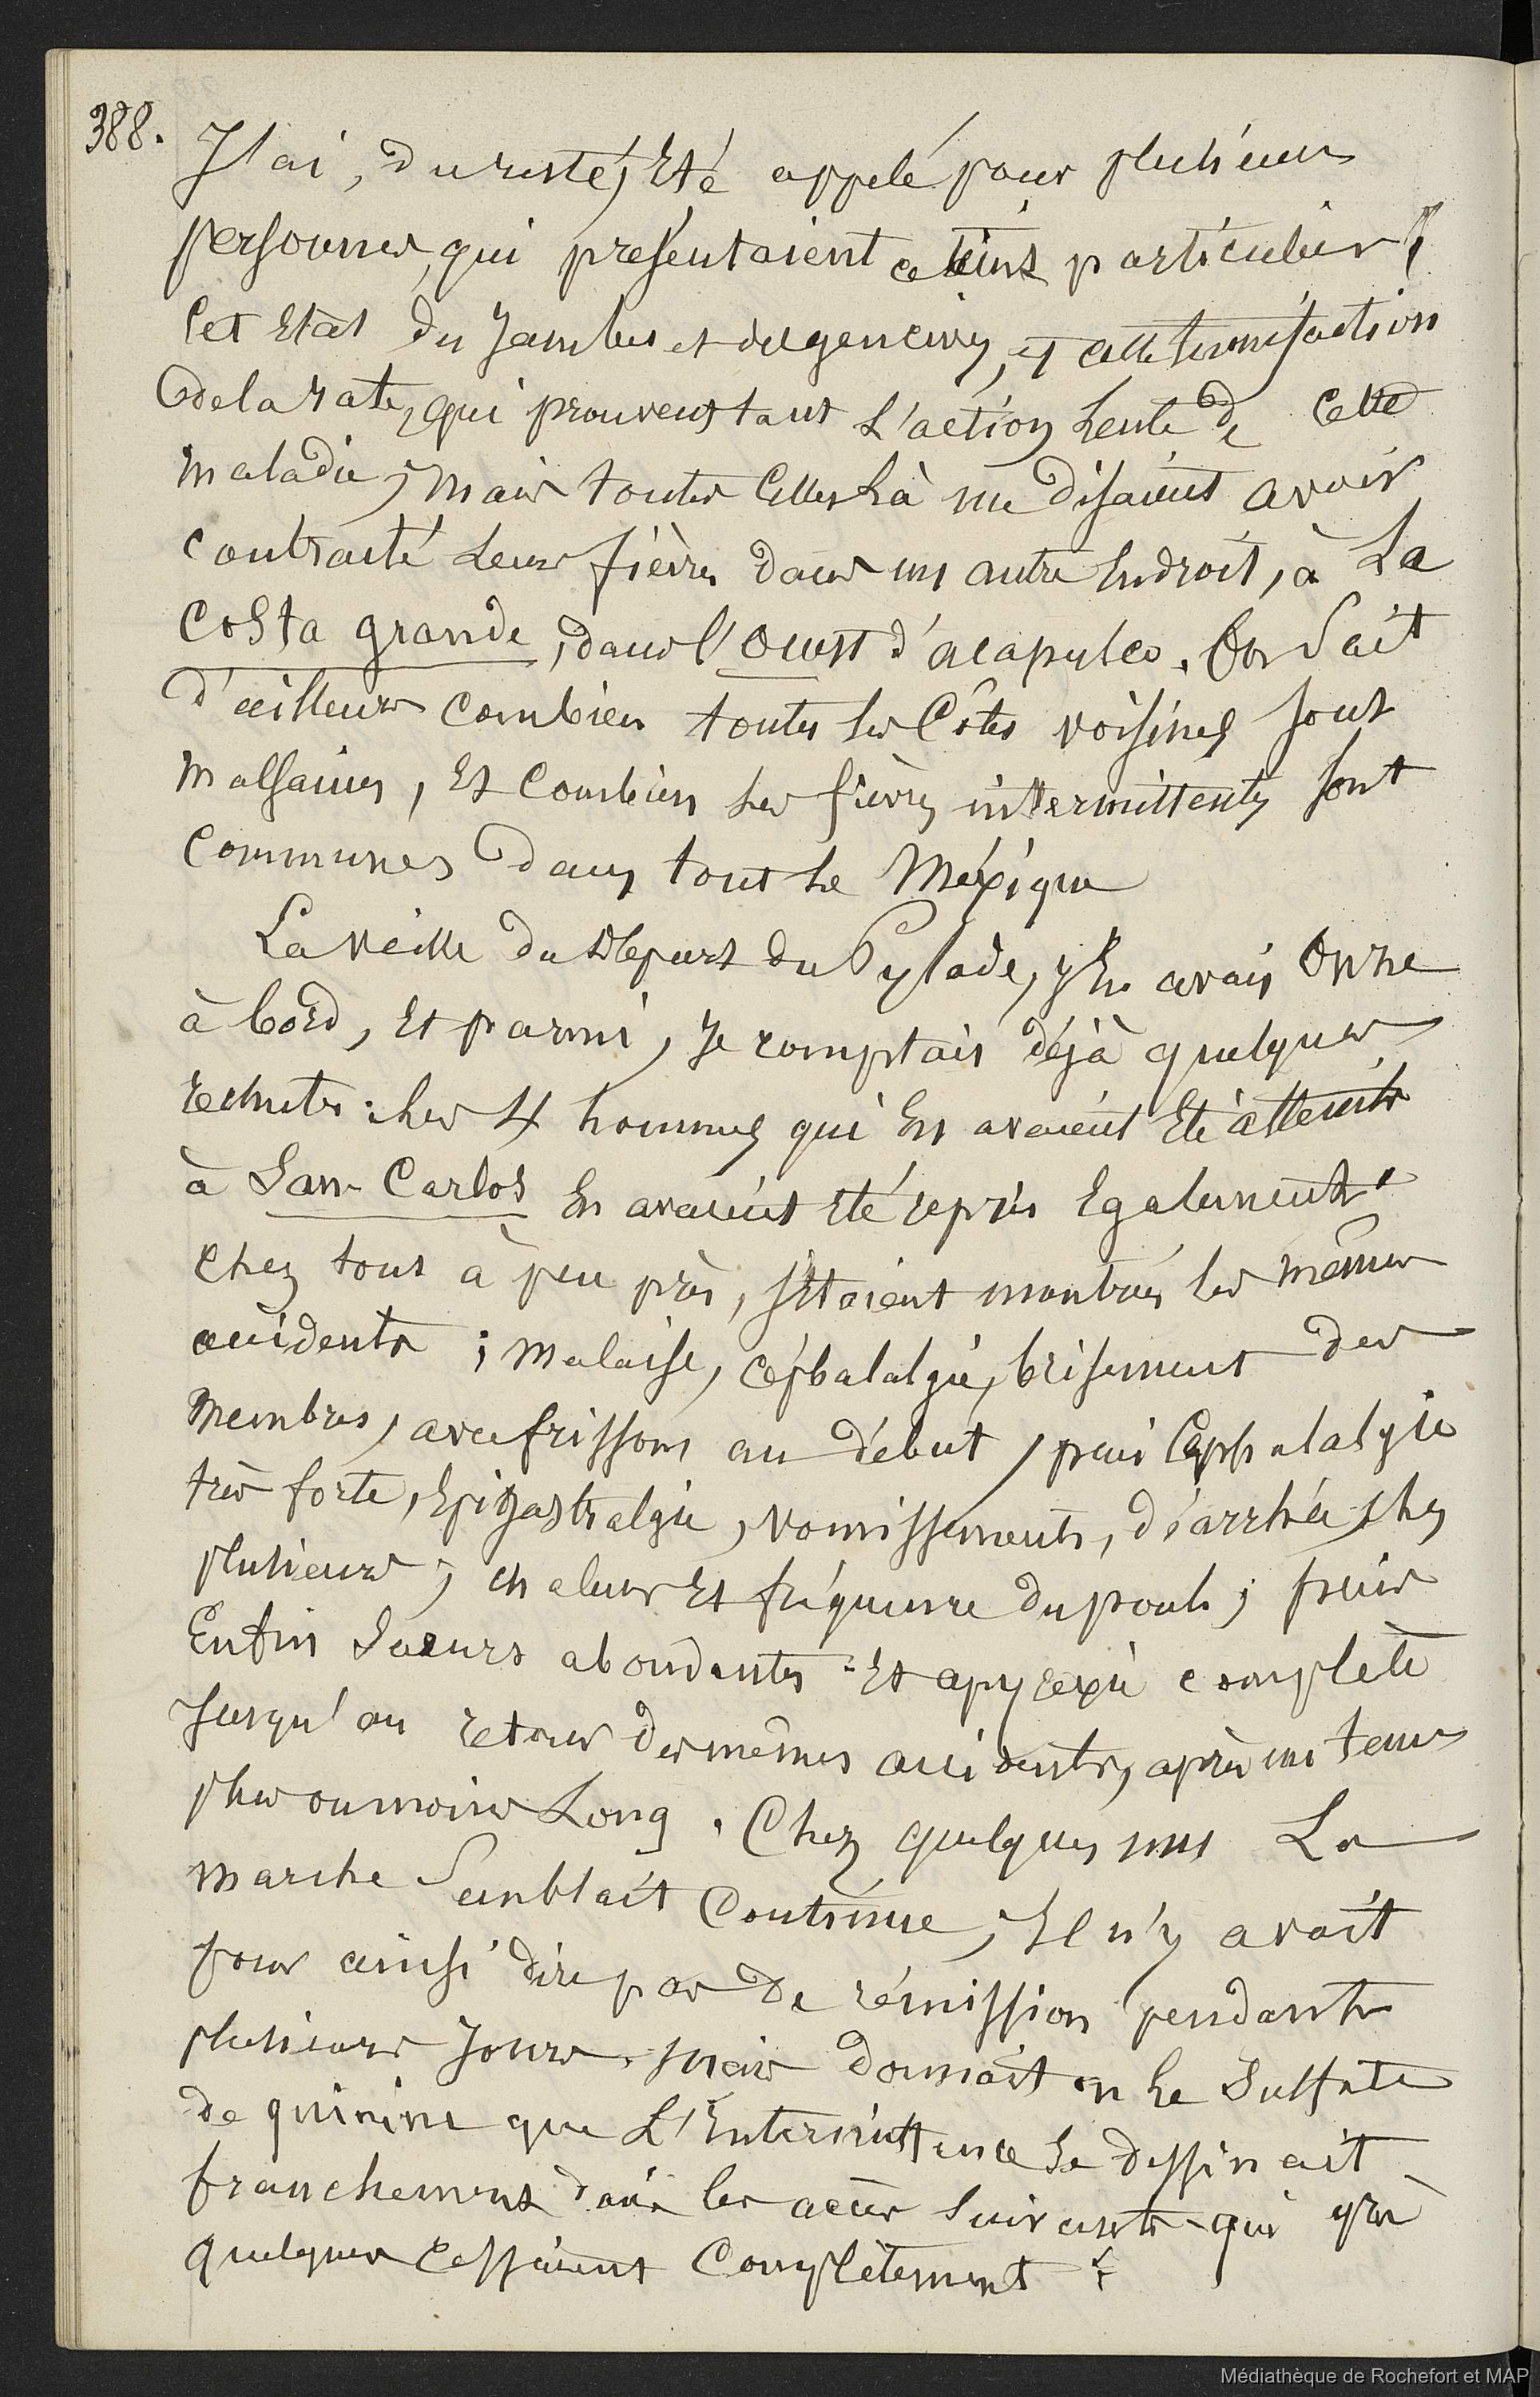 388.
J'ai, du reste, Eté appelé pour plusieurs
personnes, qui présentaient ce teint particulier,
Cet Etat des Jambes et des gencives, et cette tuméfaction
de la rate, qui prouvent tant L'action Lente de Cette
maladie, mais toutes Celles Là me disaient avoir
contracté Leurs fièvres dans un autre Endroit, à La
Costa grande, dans l'Ouest d'acapulco. On Sait
d'ailleurs combien toutes Les Côtes voisines sont
malsaines, Et Combien Les fièvres intermittentes sont
Communes dans tout Le Méxique
La veille du départ du Pylade, J'En avais Onze
à bord, Et parmi, Je comptais déjà quelques
rechutes. Les 4 hommes qui En avaient Eté atteints
à San-Carlos En avaient Eté repris Egalement.
Chez tous à peu près, s'Etaient montrés Les mêmes
accidents ; malaise, céphalalgie, brisement des
Membres, avec frissons au début, puis Cephalalgie
très forte, Epigastralgie, vomissements, diarrhée chez
plusieurs ; chaleur Et fréquence du pouls ; puis
Enfin Sueurs abondantes Et apyrexie complète
Jusqu'au retour des mêmes accidents, après un tems
plus ou moins Long. Chez quelques uns La
marche Semblait Continue, Il n'y avait
pour ainsi dire pas de rémission pendant
plusieurs Jours, mais donnait on Le Sulfate
de quinine que L'Intermittence Se dessinait
franchement dans les accès Suivants qui
quelques Cessaient Complètement.
Médiathèque de Rochefort et MAP